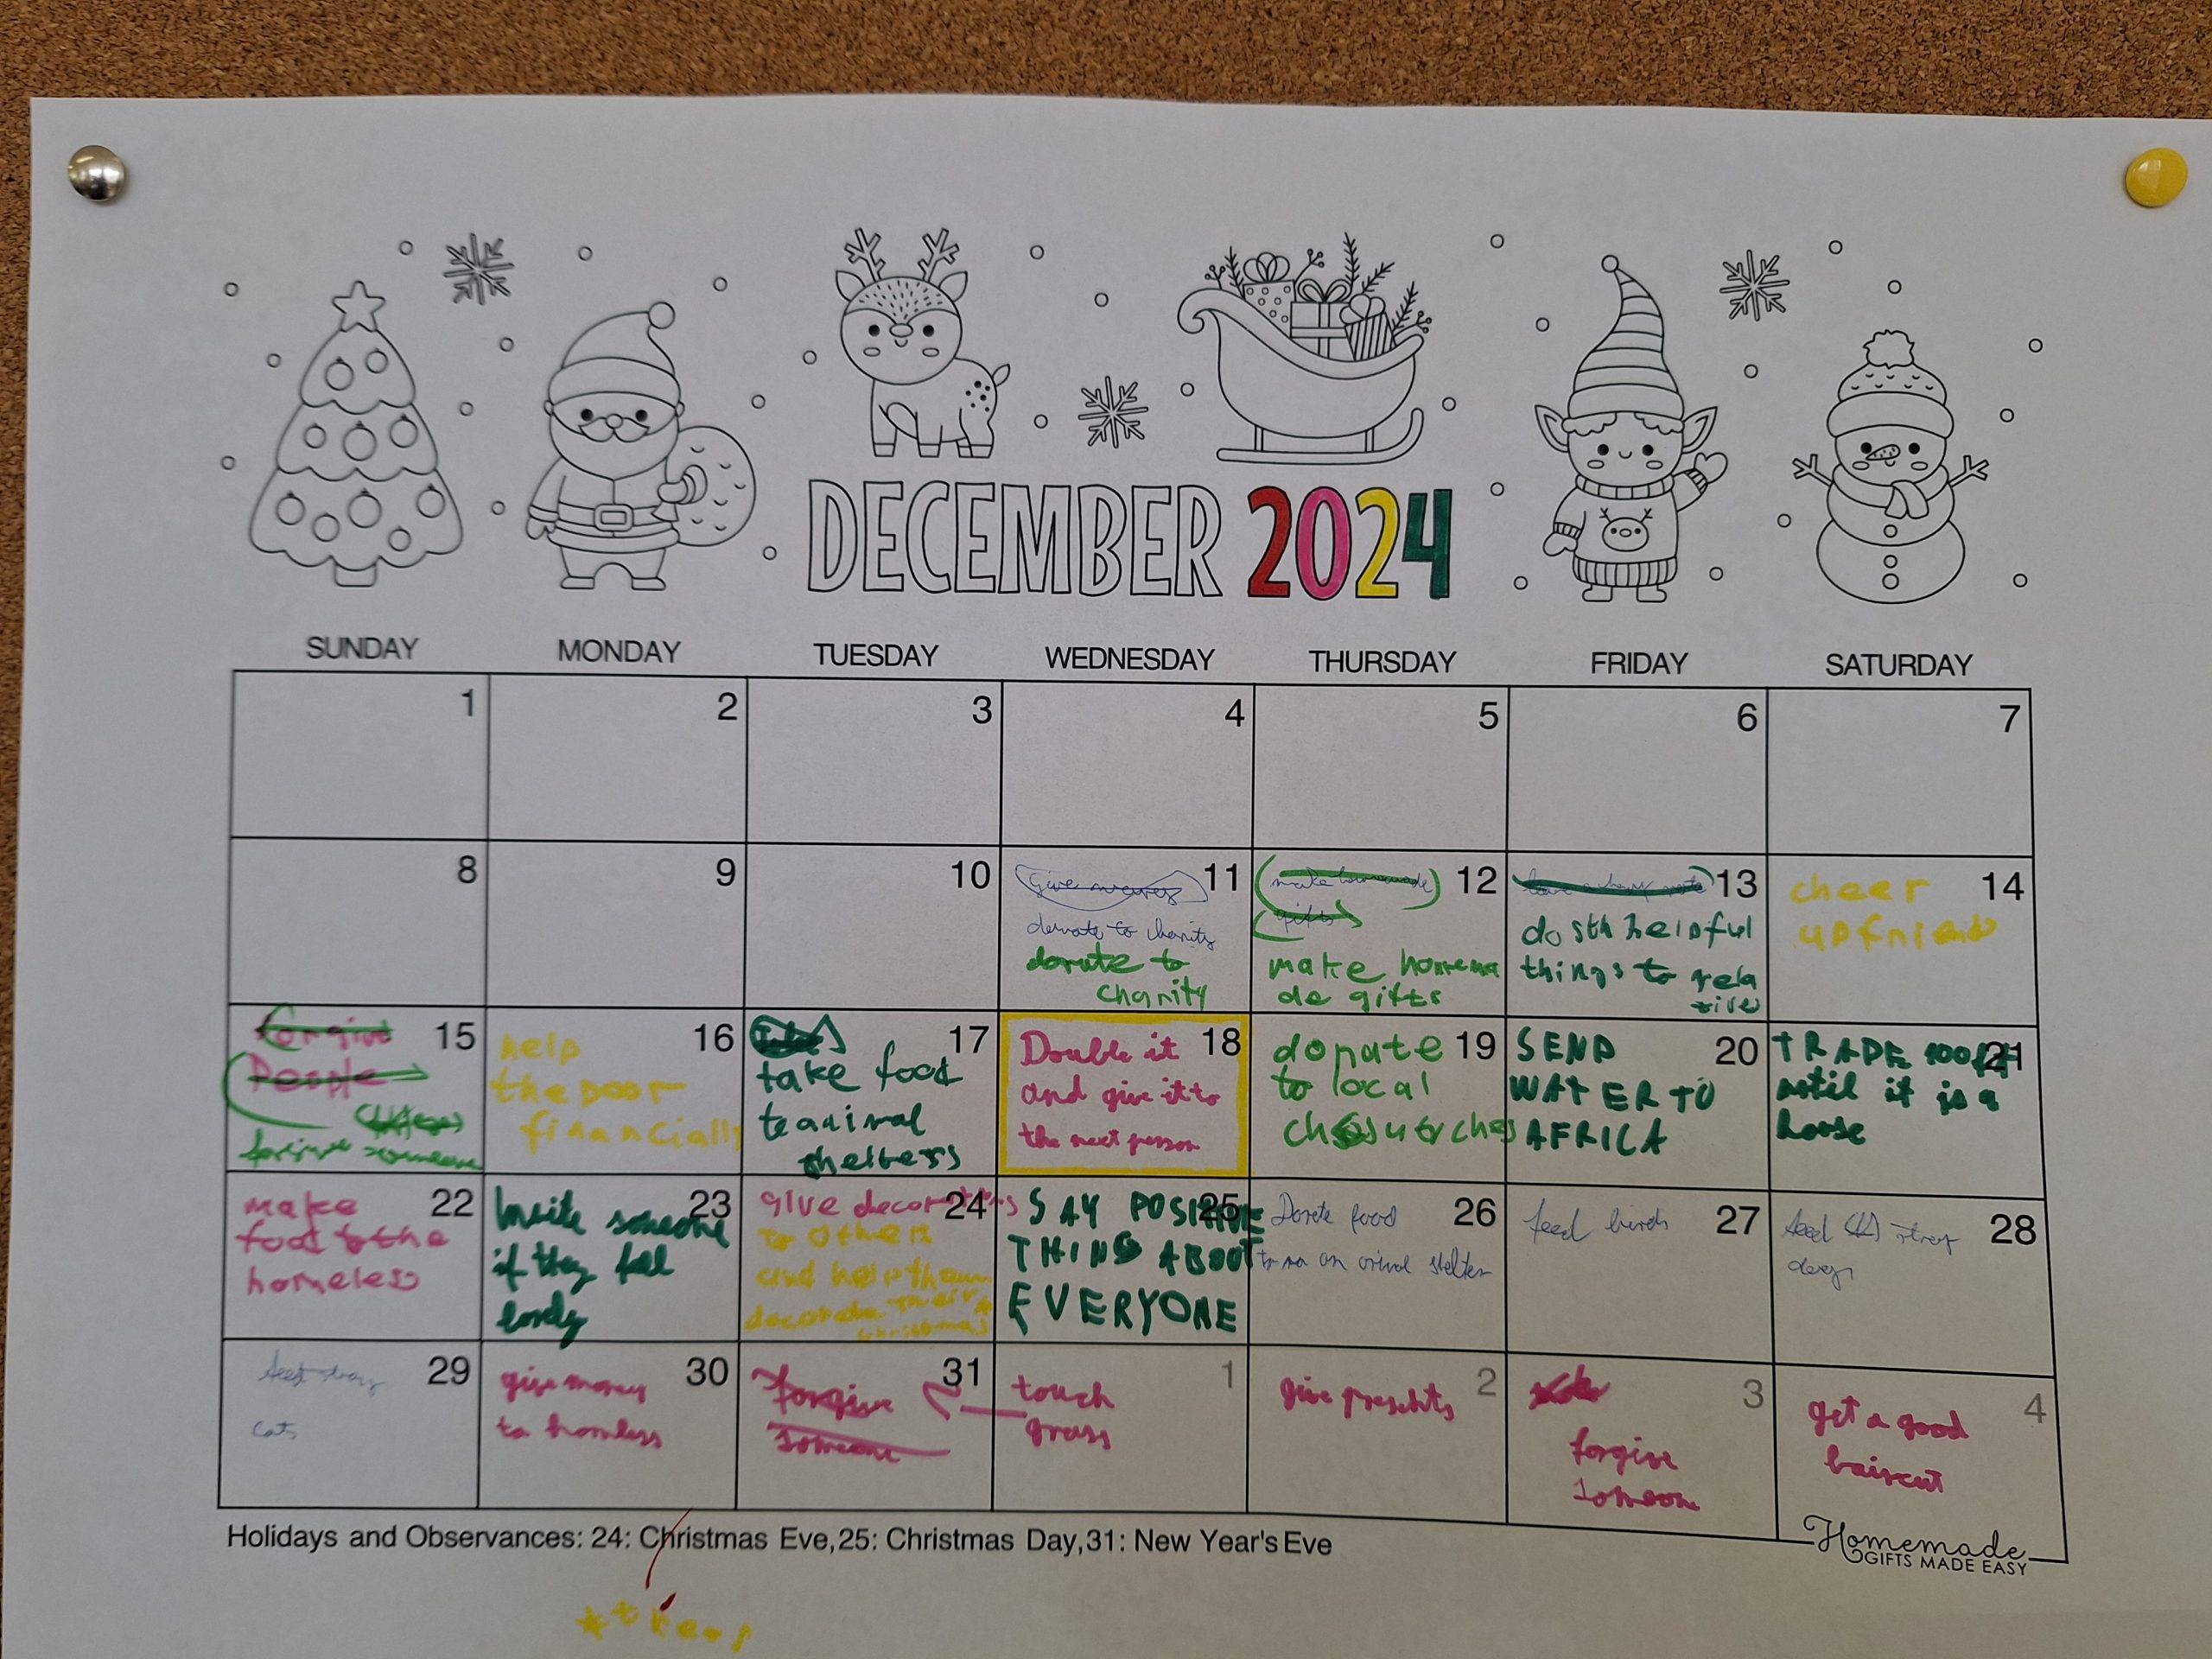 DECEMBER 2024
SUNDAY MONDAY TUESDAY WEDNESDAY THURSDAY FRIDAY SATURDAY
1
2
3
4
5
6
7
8
9
10
11
donate to charity
donate to
charity
12
make homemade
gifts
make homema
de gifts
13
do sth helpful
things to rela
tives
14
cheer
up friend
15
forgive
People
forgive someone
16
help
the poor
financially
17
take food
to animal
shelters
18
Double it
and give it to
the next person
19
donate
to local
churches
20
SEND
WATER TO
AFRICA
21
TRADE
until it is a
house
22
make
food to the
homeless
23
Invite someone
if they fell
lonely
24
give decorations
to others
and help them
decorate their
christmas
25
SAY POSITIVE
THING ABOUT
EVERYONE
26
Donate food
to an animal shelter
27
feed birds
28
feed stray
dogs
29
feed stray
cats
30
give money
to homless
31
forgive
someone
1
touch
grass
2
give presents
3
forgive
someone
4
get a good
haircut
Holidays and Observances: 24: Christmas Eve,25: Christmas Day,31: New Year's Eve
Homemade
GIFTS MADE EASY